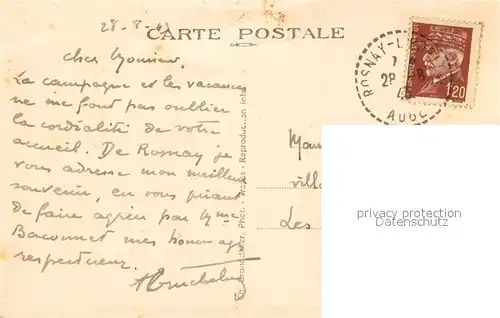 28-8-43
CARTE POSTALE
Cher Monsieur,
La campagne et les vacances
ne me font pas oublier
la cordialité de votre
accueil. De Rosnay je
vous adresse mon meilleur
souvenir, en vous priant
de faire agréer par Mme
Baconnet mes hommages
respectueux.
ROSNAY-L
AUBE
1F20
Mons
Villa
Les
privacy protection
Datenschutz
Phot. - Troyes - Reproduction inter